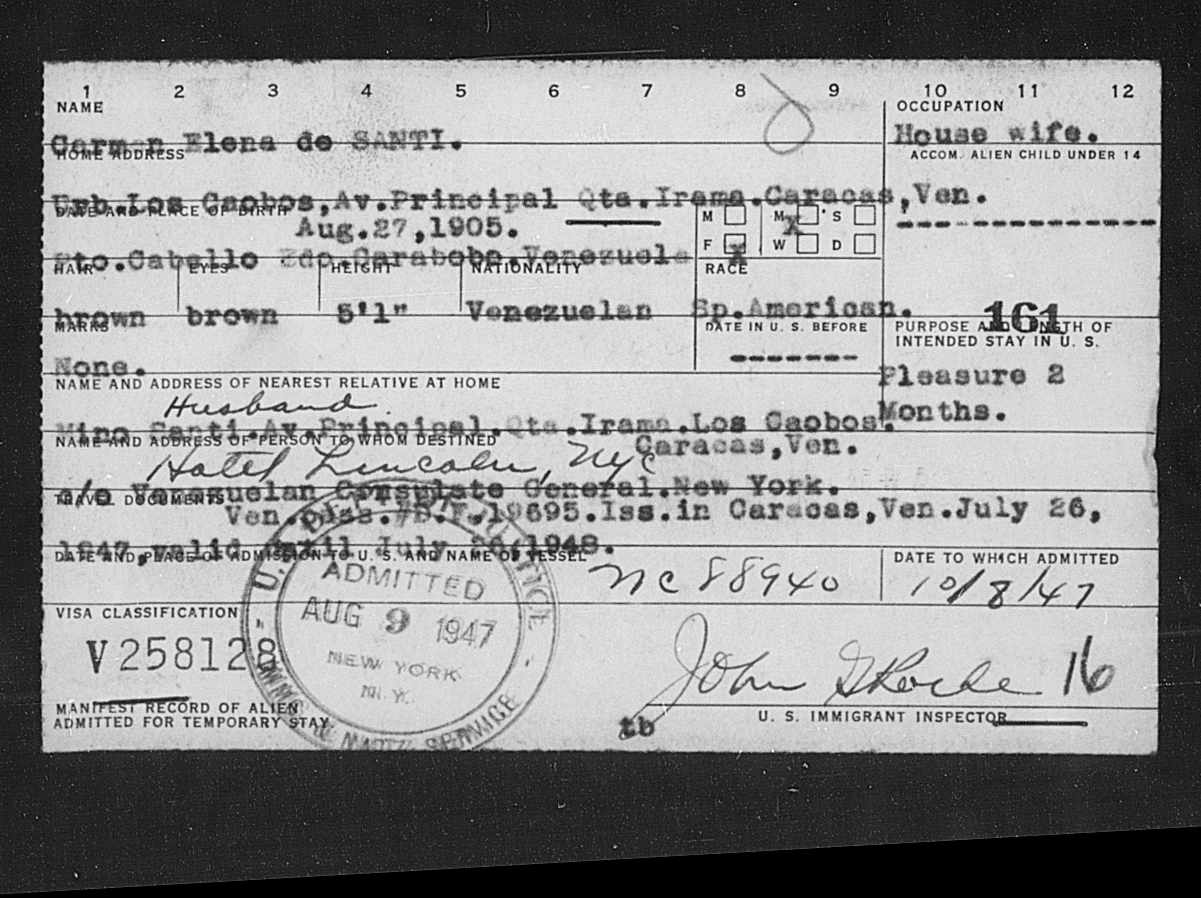 1 2 3 4 5 6 7 8 9 10 11 12
NAME
OCCUPATION
Carmen Elena de SANTI.
House wife.
HOME ADDRESS
ACCOM. ALIEN CHILD UNDER 14
Urb.Los Caobos,Av.Principal Qta.Irama.Caracas,Ven.
DATE AND PLACE OF BIRTH
M M X S
Aug.27,1905.
F X W D
Pto.Cabello Edo.Carabobo.Venezuela
HAIR EYES HEIGHT NATIONALITY RACE
brown brown 5'1" Venezuelan Sp.American.
161
MARKS
DATE IN U. S. BEFORE
PURPOSE AND LENGTH OF
INTENDED STAY IN U. S.
None.
-------
Pleasure 2
Months.
NAME AND ADDRESS OF NEAREST RELATIVE AT HOME
Husband.
Santi.Av.Principal.Qta.Irama.Los Caobos.
Caracas,Ven.
NAME AND ADDRESS OF PERSON TO WHOM DESTINED
Hotel Lincoln, NYC
c/o Venezuelan Consulate General.New York.
TRAVEL DOCUMENTS
Ven.pass.#D.F.19695.Iss.in Caracas,Ven.July 26,
1947,valid until July 26,1948.
DATE AND PLACE OF ADMISSION TO U. S. AND NAME OF VESSEL
DATE TO WHICH ADMITTED
NC 88940
10/8/47
U.S.
ADMITTED
AUG 9 1947
NEW YORK
N.Y.
VISA CLASSIFICATION
V258128
John 16
MANIFEST RECORD OF ALIEN
ADMITTED FOR TEMPORARY STAY
tb
U. S. IMMIGRANT INSPECTOR